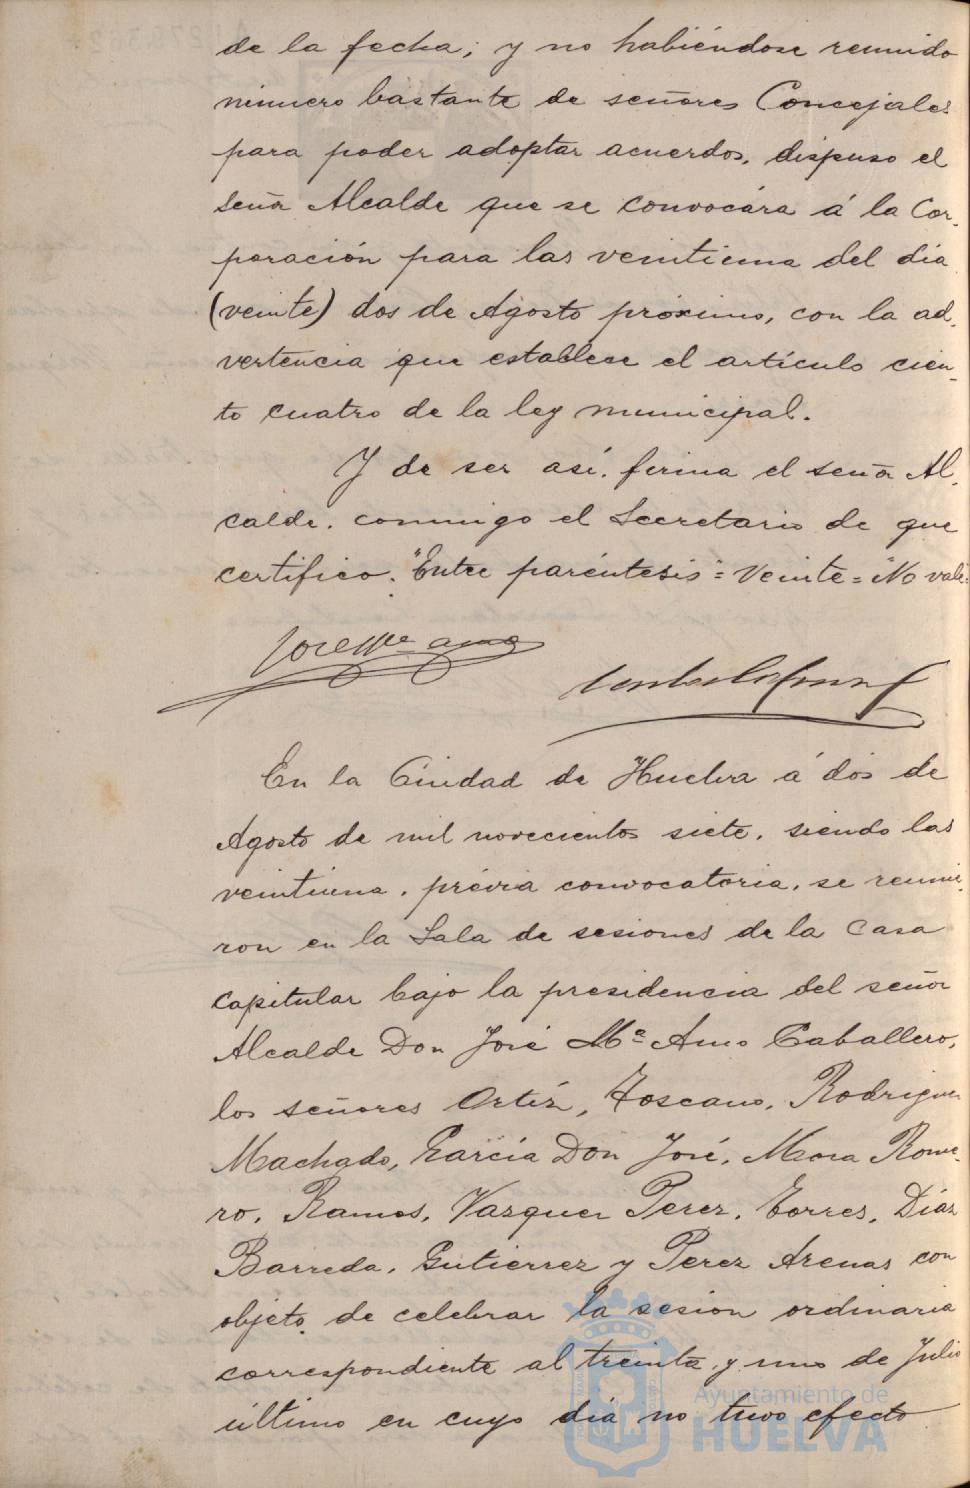 de la fecha; y no habiéndose reunido
número bastante de señores Concejales
para poder adoptar acuerdos, dispuso el
señor Alcalde que se convocára á la Cor-
poración para las veintiuna del dia
(veinte) dos de Agosto próximo, con la ad-
vertencia que establece el artículo cien-
to cuatro de la ley municipal.
Y de ser así, firma el señor Al-
calde, conmigo el Secretario de que
certifico. "Entre paréntesis"= veinte = No vale.
José Mª Amo
En la Ciudad de Huelva á dos de
Agosto de mil novecientos siete, siendo las
veintiuna, prévia convocatoria, se reunie-
ron en la Sala de sesiones de la Casa
capitular bajo la presidencia del señor
Alcalde Don José Mª Amo Caballero,
los señores Ortíz, Toscano, Rodriguez
Machado, García Don José, Mora Rome-
ro, Ramos, Vazquez Perez, Torres, Díaz
Barreda, Gutierrez y Perez Arenas con
objeto de celebrar la sesion ordinaria
correspondiente al treinta y uno de Julio
último en cuyo dia no tuvo efecto
Ayuntamiento de
HUELVA